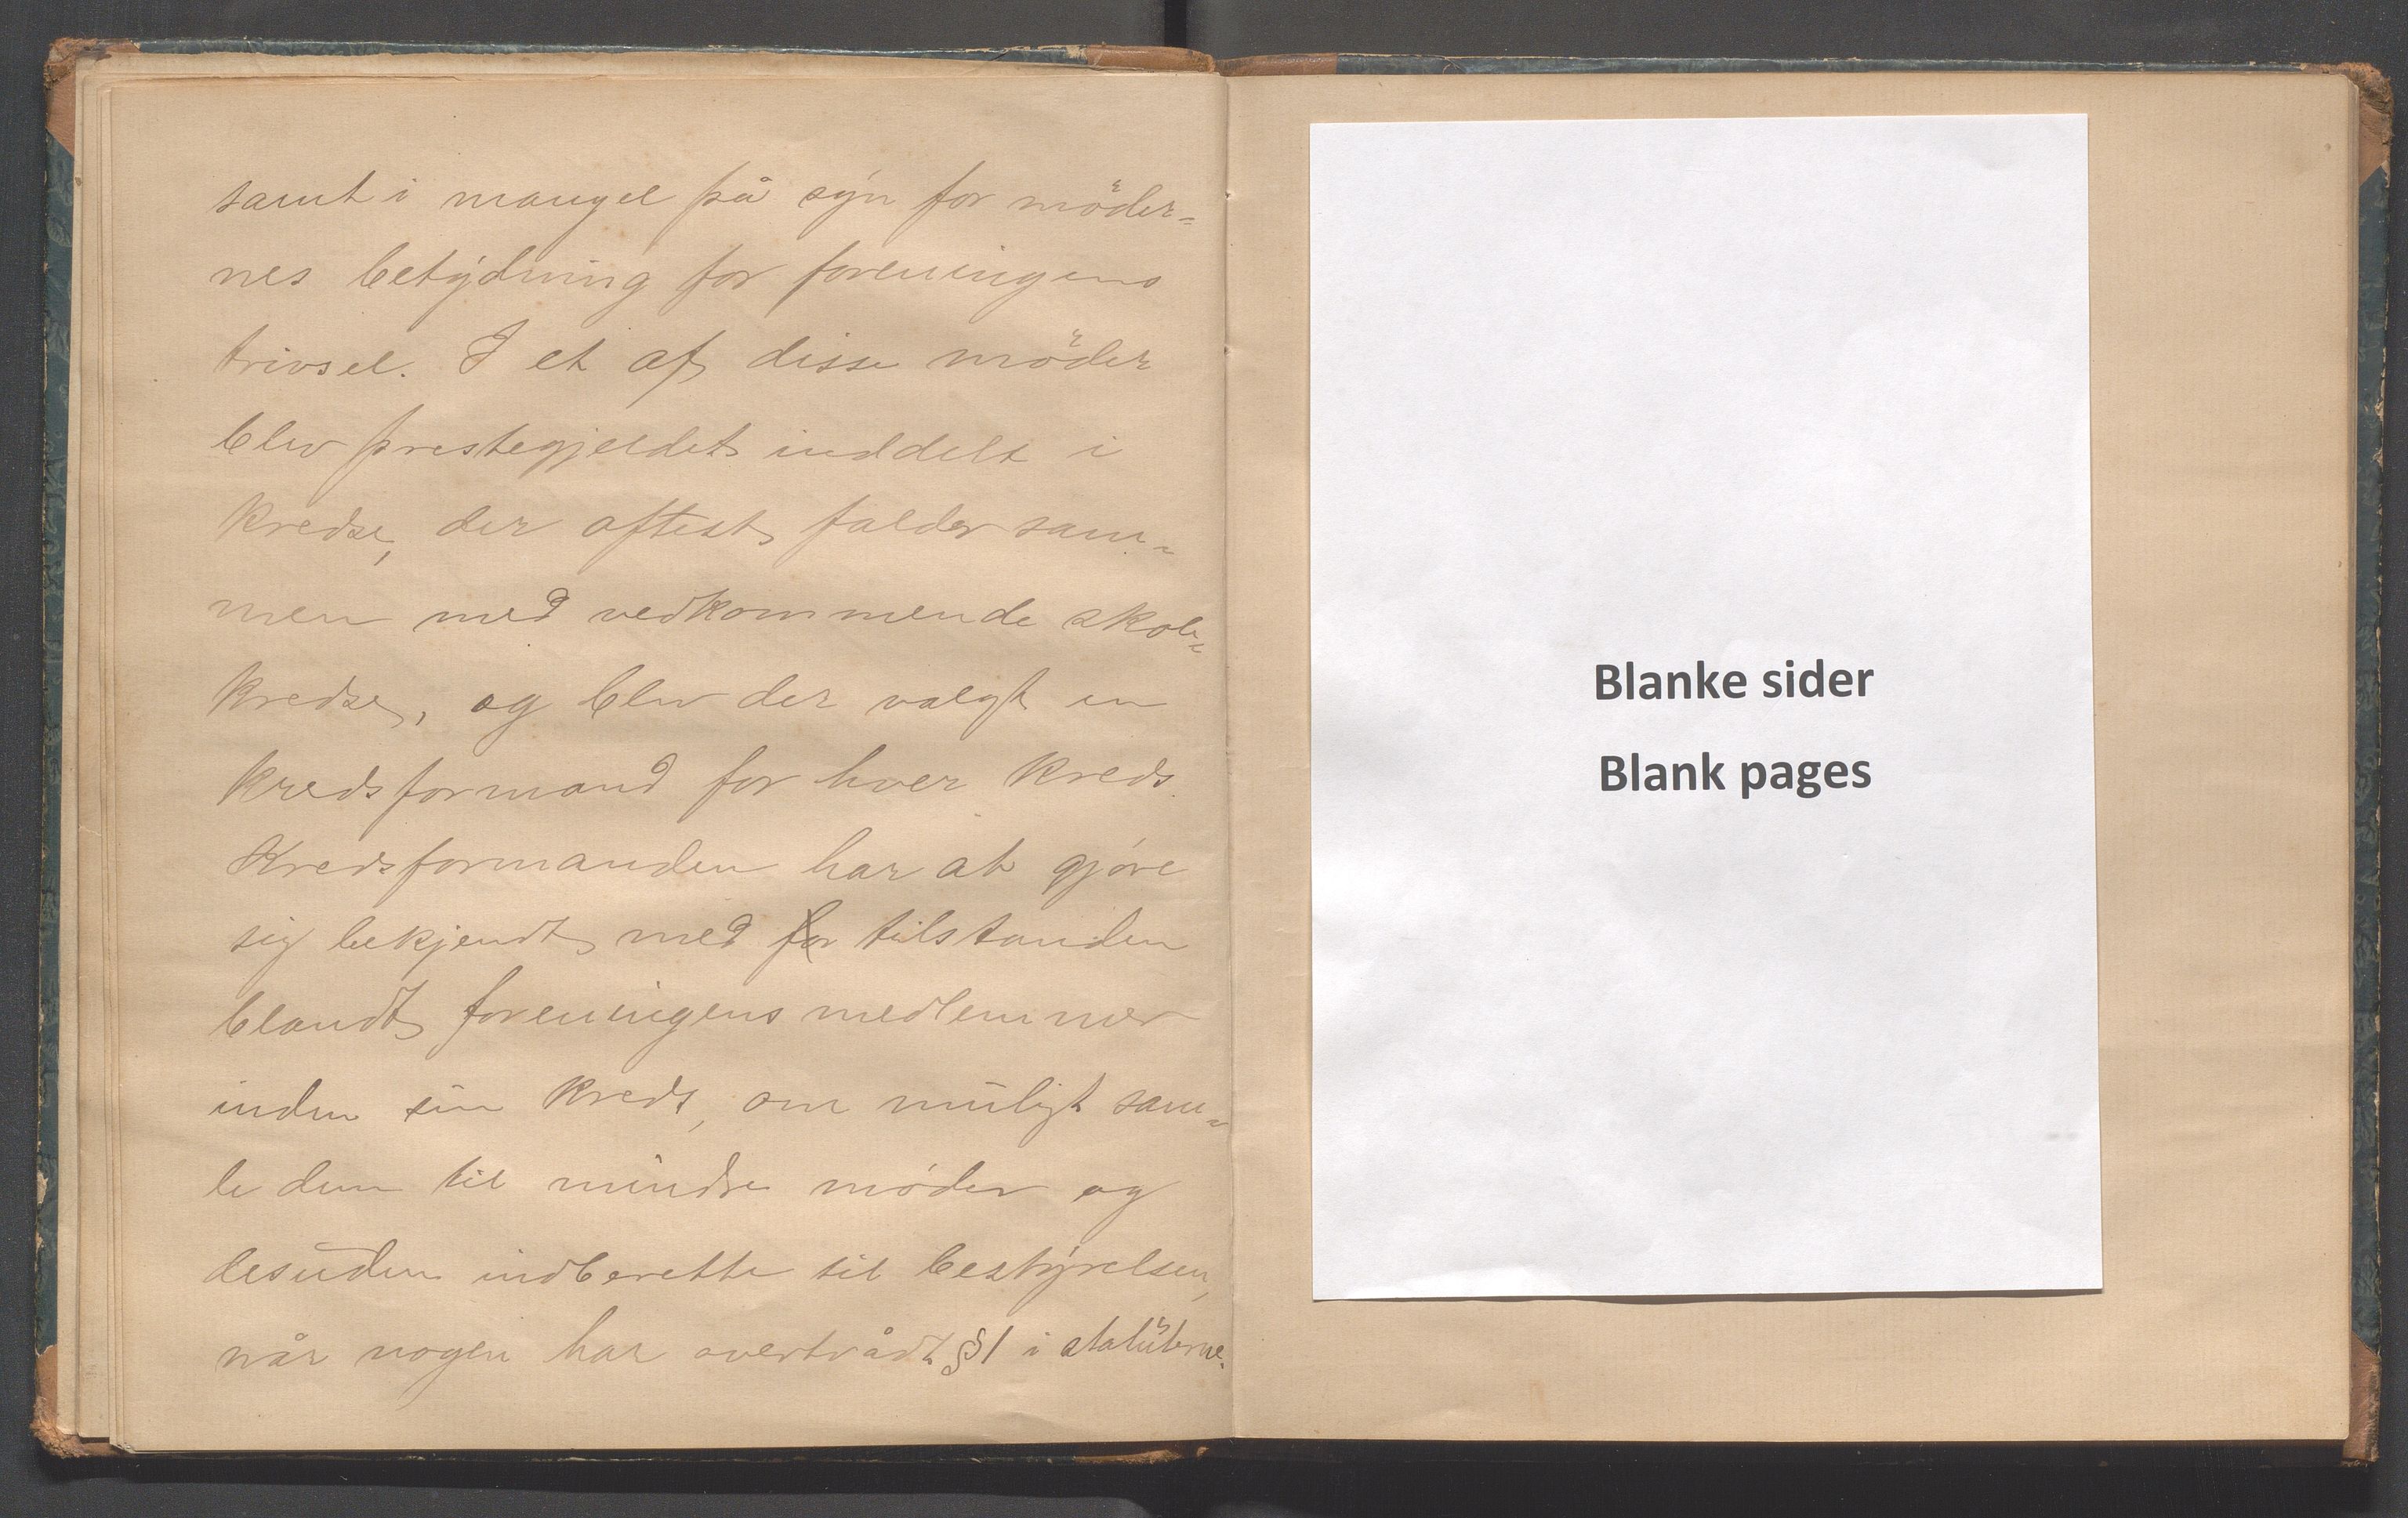 samt i mangel på syn for möder=
nes betydning for foreningens
trivsel. I et af disse möder
blev prestegjeldet inddelt i
kredse, der oftest falder sam=
men med vedkommende skole=
kredse, og blev der valgt en
kredsformand for hver kreds.
Kredsformanden har at gjöre
sig bekjendt med for tilstanden
blandt foreningens medlemmer
inden sin kreds, om muligt sam=
le dem til mindre möder og
desuden indberette til bestyrelsen,
når nogen har overtrådt §1 i statuterne.
Blanke sider
Blank pages